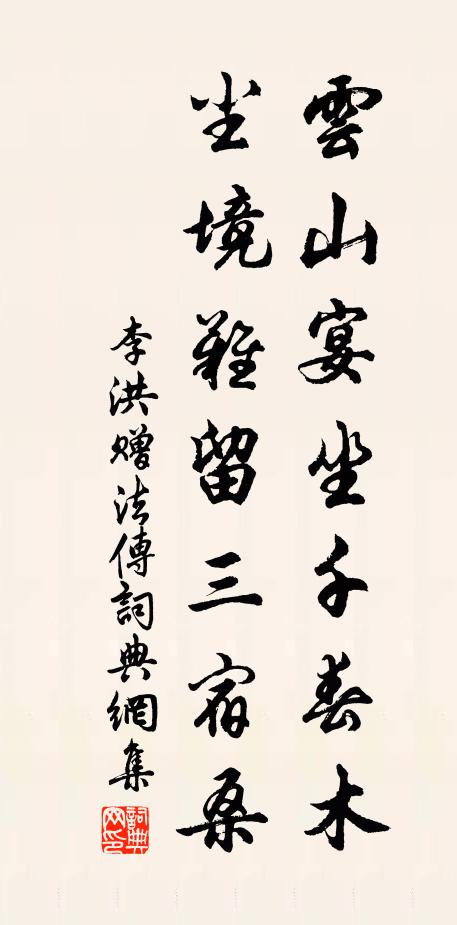 雲山宴坐千春木
尘境難留三宿桑
李洪贈法傳詞典網集
詞典网印